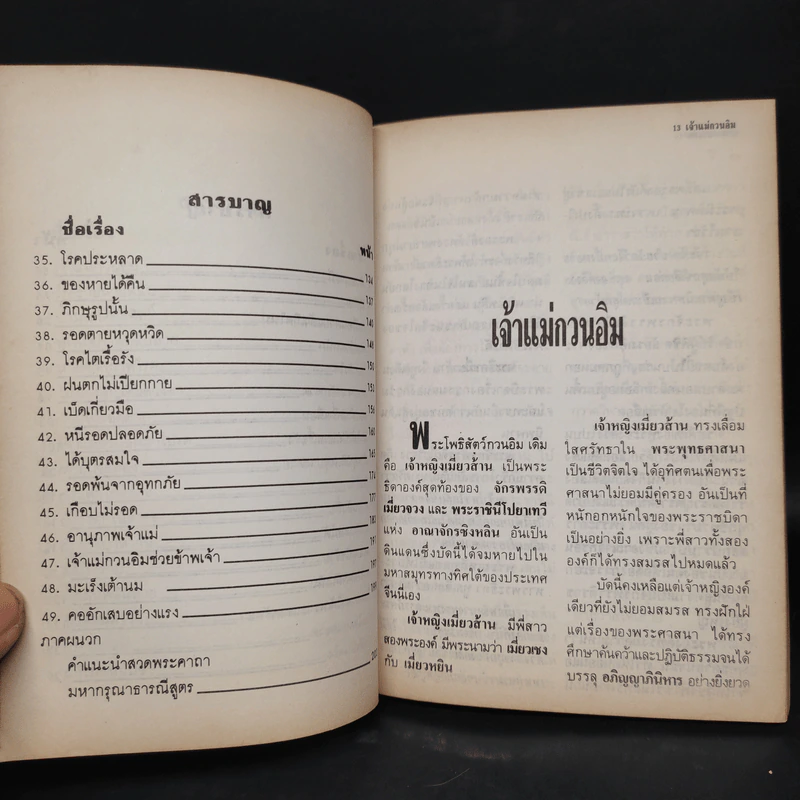 สารบาญ
ชื่อเรื่อง
หน้า
35. โรคประหลาด 134
36. ของหายได้คืน 137
37. ภิกษุรูปนั้น 140
38. รอดตายหวุดหวิด 148
39. โรคไตเรื้อรัง 150
40. ฝนตกไม่เปียกกาย 153
41. เบ็ดเกี่ยวมือ 156
42. หนีรอดปลอดภัย 160
43. ได้บุตรสมใจ 165
44. รอดพ้นจากอุทกภัย 174
45. เกือบไม่รอด 177
46. อานุภาพเจ้าแม่
47. เจ้าแม่กวนอิมช่วยข้าพเจ้า
48. มะเร็งเต้านม
49. คออักเสบอย่างแรง
ภาคผนวก
คำแนะนำสวดพระคาถา
มหากรุณาธารณีสูตร
13 เจ้าแม่กวนอิม
เจ้าแม่กวนอิม
พระโพธิสัตว์กวนอิม เดิม
คือ เจ้าหญิงเมี่ยวส้าน เป็นพระ
ธิดาองค์สุดท้องของ จักรพรรดิ
เมี่ยวจวง และ พระราชินีโปยาเทวี
แห่ง อาณาจักรซิงหลิน อันเป็น
ดินแดนซึ่งบัดนี้ได้จมหายไปใน
มหาสมุทรทางทิศใต้ของประเทศ
จีนนี่เอง
เจ้าหญิงเมี่ยวส้าน มีพี่สาว
สองพระองค์ มีพระนามว่า เมี่ยวเซง
กับ เมี่ยวหยิน
เจ้าหญิงเมี่ยวส้าน ทรงเลื่อม
ใสศรัทธาใน พระพุทธศาสนา
เป็นชีวิตจิตใจ ได้อุทิศตนเพื่อพระ
ศาสนาไม่ยอมมีคู่ครอง อันเป็นที่
หนักอกหนักใจของพระราชบิดา
เป็นอย่างยิ่ง เพราะพี่สาวทั้งสอง
องค์ก็ได้ทรงสมรสไปหมดแล้ว
บัดนี้คงเหลือแต่เจ้าหญิงองค์
เดียวที่ยังไม่ยอมสมรส ทรงฝักใฝ่
แต่เรื่องของพระศาสนา ได้ทรง
ศึกษาค้นคว้าและปฏิบัติธรรมจนได้
บรรลุ อภิญญาภินิหาร อย่างยิ่งยวด